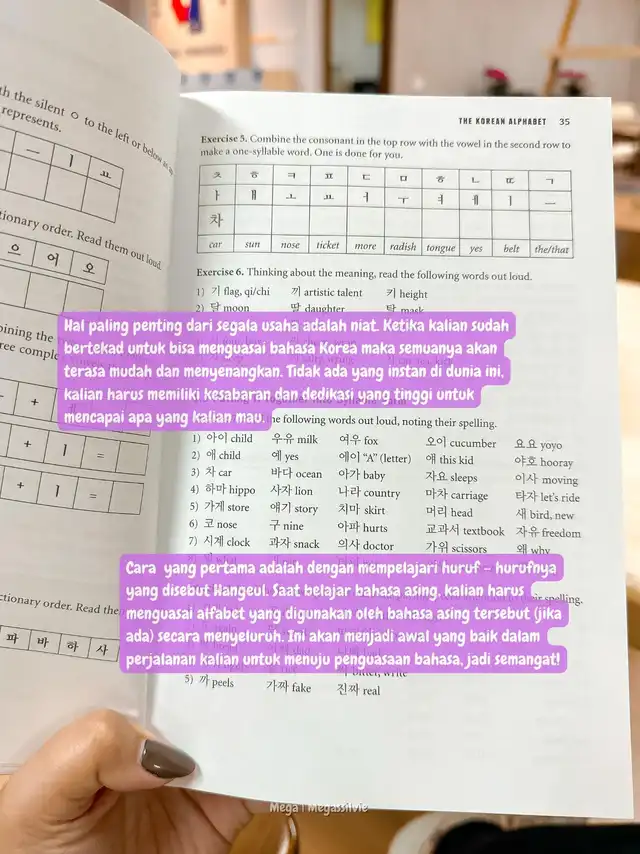 THE KOREAN ALPHABET 35
th the silent ㅇ to the left or below as
represents.
ㅡ ㅣ ㅛ
tionary order. Read them out loud.
으 어 오
+ 1 =
+ 1 =
ctionary order. Read the
파 바 하 사
Exercise 5. Combine the consonant in the top row with the vowel in the second row to
make a one-syllable word. One is done for you.
ㅊ ㅎ ㅋ ㅍ ㄷ ㅁ ㅎ ㄴ ㄸ ㄱ
ㅏ ㅐ ㅗ ㅛ ㅓ ㅜ ㅕ ㅔ ㅣ ㅡ
차
car sun nose ticket more radish tongue yes belt the/that
Exercise 6. Thinking about the meaning, read the following words out loud.
1) 기 flag, qi/chi 끼 artistic talent 키 height
2) 달 moon 딸 daughter 탈 mask
Hal paling penting dari segala usaha adalah niat. Ketika kalian sudah
bertekad untuk bisa menguasai bahasa Korea maka semuanya akan
terasa mudah dan menyenangkan. Tidak ada yang instan di dunia ini,
kalian harus memiliki kesabaran dan dedikasi yang tinggi untuk
mencapai apa yang kalian mau.
the following words out loud, noting their spelling.
1) 아이 child 우유 milk 여우 fox 오이 cucumber 요요 yoyo
2) 애 child 예 yes 에이 “A” (letter) 얘 this kid 야호 hooray
3) 차 car 바다 ocean 아가 baby 자요 sleeps 이사 moving
4) 하마 hippo 사자 lion 나라 country 마차 carriage 타자 let's ride
5) 가게 store 얘기 story 치마 skirt 머리 head 새 bird, new
6) 코 nose 구 nine 아파 hurts 교과서 textbook 자유 freedom
7) 시계 clock 과자 snack 의사 doctor 가위 scissors 왜 why
Cara yang pertama adalah dengan mempelajari huruf – hurufnya
yang disebut Hangeul. Saat belajar bahasa asing, kalian harus
menguasai alfabet yang digunakan oleh bahasa asing tersebut (jika
ada) secara menyeluruh. Ini akan menjadi awal yang baik dalam
perjalanan kalian untuk menuju penguasaan bahasa, jadi semangat!
spelling.
5) 까 peels 가짜 fake 진짜 real
Mega | Megassilvie